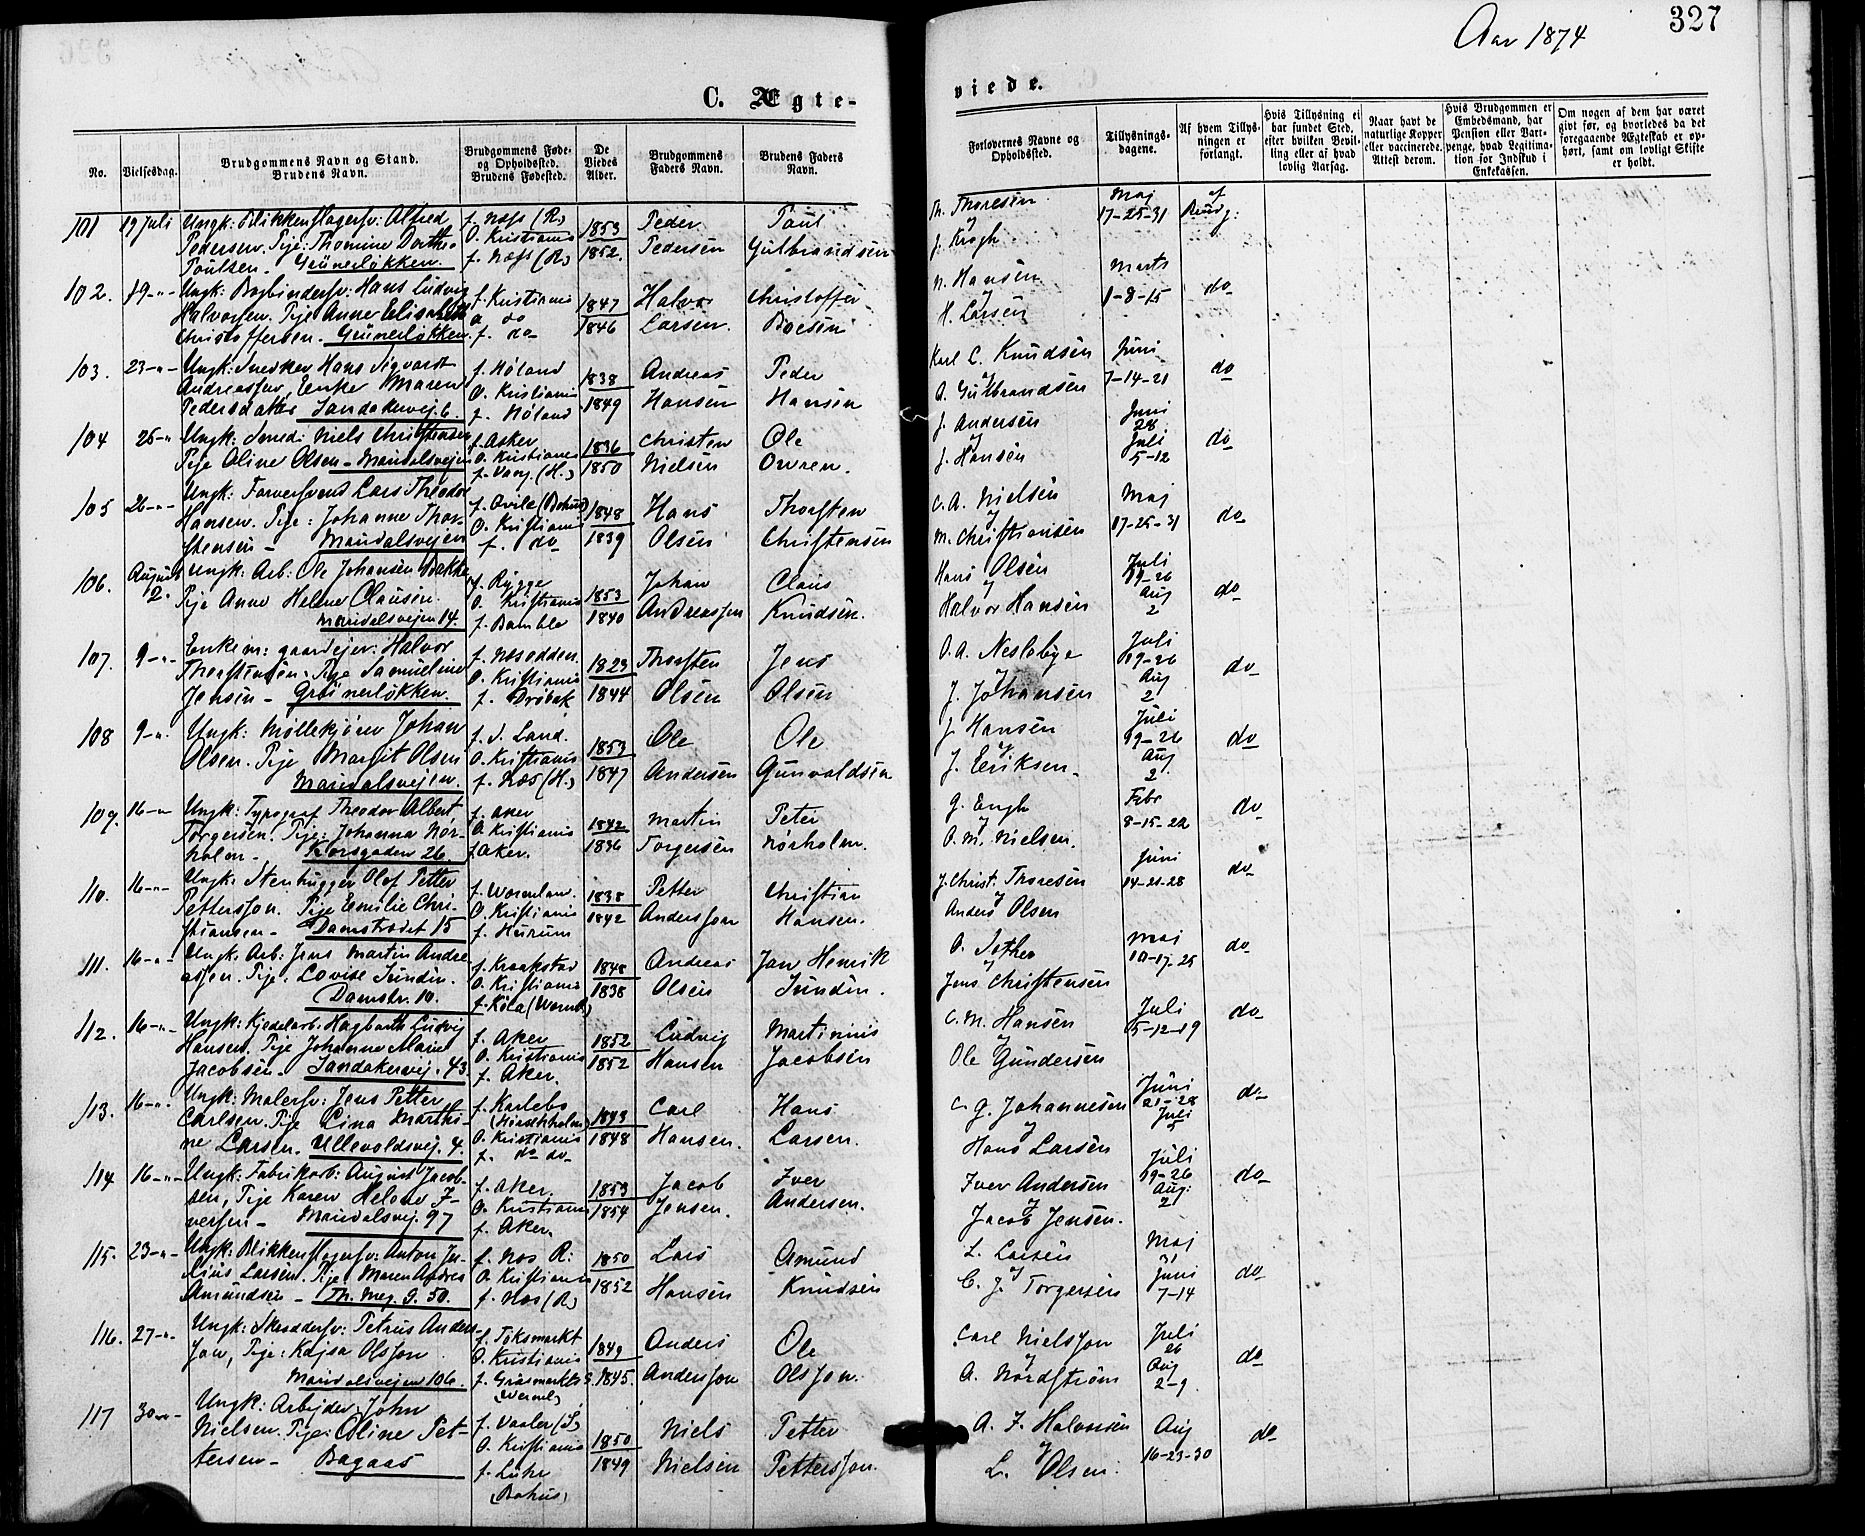 327
Aar 1874
C. Ægte-
viede.
No.
Vielsesdag.
Brudgommens Navn og Stand.
Brudens Navn.
Brudgommens Føde-
og Opholdssted.
Brudens Fødested.
De
Viedes
Alder.
Brudgommens
Faders Navn.
Brudens Faders
Navn.
Forlovernes Navne og
Opholdssted.
Tillysnings-
dagene.
Af hvem Tillys-
ningen er
forlangt.
Hvis Tillysning ei
har fundet Sted,
efter hvilken Bevil-
ling eller af hvad
lovlig Aarsag.
Naar havt de
naturlige Kopper
eller vaccinerede.
Attest derom.
Hvis Brudgommen er
Embedsmand, har
Pension eller Vart-
penge, hvad Legitima-
tion for Indskud i
Enkekassen.
Om nogen af dem har været
givt før, og hvorledes da det
foregaaende Ægteskab er op-
hørt, samt om lovligt Skifte
er holdt.
101 19 Juli Ungk: Blikkenslagersv: Alfred f. Næss (R.) 1853 Peder Poul Th. Thoresen Maj af
Pedersen. Pije: Thomine Dorthea O. Kristiania 1852. Pedersen Gulbrandsen J. Krogh 17-25-31 Brudg:
Poulsen. Grünerløkken. f. Næss (R.)
102. 19-"- Ungk: Bogbindersv: Hans Ludvig f. Kristiania 1847 Halvor Christoffer N. Hansen Marts do
Halvorsen. Pije Anne Elisabeth o do 1846 Larsen. Boesen H. Larsen 1-8-15
Christoffersen. Grünerløkken. f. do
103. 23-"- Ungk: Snedker Hans Sigvardt f. Høland 1838 Andreas Peder Karl L. Knudsen Juni do
Andreassen, Enke Maren O. Kristiania 1849 Hansen Hansen O. Gulbrandsen 7-14-21
Pedersdatter Sandakervej. 6. f. Høland
104 26-" Ungk: Smed: Niels Christensen f. Asker 1836 Christen Ole J. Andersen Juni 28. do
Pije Oline Olsen - Maridalsvejen O. Kristiania 1850 Nielsen Owren. J. Hansen Juli 5-12
f. Vang. (H.)
105 26-"- Ungk: Farversvend Lars Theodor f. Qvile (Bohus) 1848 Hans Thorsten C. A. Nielsen Maj do
Hansen. Pije: Johanne Thor- O. Kristiania 1839 Olsen Christensen M. Christiansen 17-25-31
stensen - Maridalsvejen f. do
106. August 2. Ungk: Arb: Ole Johansen Bakke f. Rygge 1853 Johan Claus Hans Olsen Juli 19-26 do
Pije Anne Helene Clausen. O. Kristiania 1840 Andreassen Knudsen. Halvor Hansen Aug 2
Maridalsvejen 14. f. Bamble
107. 9-"- Enkem: gaardejer: Halvor f. Nesodden. 1823 Thorsten Jens O. A. Neslebye Juli 19-26 do
Thorstensen. Pije Samueline O. Kristiania 1844 Olsen Olsen J. Johansen Aug 2
Jensen - Grünerløkken. f. Drøbak
108 9-". Ungk: Møllekjører Johan f. S. Land. 1853 Ole Ole J Hansen Juli 19-26 do
Olsen. Pije Margit Olsen O. Kristiania 1847 Andersen Gunvaldsen J. Eriksen. Aug 2
Maridalsvejen. f. Næs (H.)
109. 16-" Ungk: Typograf Theodor Albert f. Aker 1842 Martin Peter G. Engh Febr do
Torgersen. Pije: Johanna Nør- O. Kristiania 1836 Torgersen Nørholm. O. M. Nielsen. 8-15-22
holm - Korsgaden 26. f. Aker.
110. 16-"- Ungk. Stenhugger Olof Petter f. Wermlan. 1838 Petter Christian J. Christ. Thoresen Juni do
Pettersson. Pije Emilie Chri- O. Kristiania 1842 Andersson Hansen. Anders Olsen 14-21-28
stiansen - Damstrædet 15 f. Hurum
111. 16-"- Ungk. Arb: Jens Martin Andre- f. Kraakstad 1848 Andreas Jan Henrik O. Sether Maj do
assen. Pije. Lovise Sundin. O. Kristiania 1838 Olsen Sundin. Jens Christensen 10-17-25
Damstr. 10. f. Köla (Werml.)
112. 16-"- Ungk: Kjedelarb. Hagbarth Ludvig f. Aker 1852 Ludvig Martinius C. M. Hansen Juli do
Hansen. Pije Johanne Marie O. Kristiania 1852 Hansen Jacobsen Ole Gundersen 5-12-19
Jacobsen. Sandakervej. 43 f. Aker.
113. 16-". Ungk: Malersv: Jens Petter f. Karlebo 1843 Carl Hans C. G. Johannesen Juni 21-28 do
Carlsen. Pije Lina Marthi- O. Kristiania 1848 Hansen. Larsen. Hans Larsen Juli 5
ne Larsen. Ullevoldsvej. 4. f. do do
114 16-"- Ungk: Fabrikarb: August Jacob- f. Aker. 1853 Jacob Iver Iver Andersen Juli 19-26 do
sen, Pije Karen Helene I- O. Kristiania 1854 Jensen. Andersen. Jacob Jensen. Aug: 2
versen - Maridalsvej. 97 f. Aker.
115. 23-"- Ungk: Blikkenslagersv: Anton Ju- f. Næs R: 1850 Lars Amund L. Larsen Maj 31 do
lius Larsen. Pije Maren Andrea O. Kristiania 1852 Hansen Knudsen C. J. Torgersen Juni 7-14
Amundsen - Th. Mey. G. 50. f. Næs (R.)
116. 27-"- Ungk: Skræddersv: Petrus Anders- f. Toksmarkt 1849 Anders Ole Carl Nielsson Juli 26 do
son, Pije: Kajsa Olsson O. Kristiania 1845. Andersson Olsson. A. Nordstrøm Aug 2-9
Maridalsvejen 106. f. Gräsmarkt (Werml.)
117 30-"- Ungk: Arbejder John f. Vaaler (S.) 1850 Niels Petter A. F. Halvorsen Aug do
Nielsen. Pije: Oline Pet- O. Kristiania 1849 Nielsen Pettersson. L. Olsen. 16-23-30
tersen - Bagaas f. Luhr (Bohus)